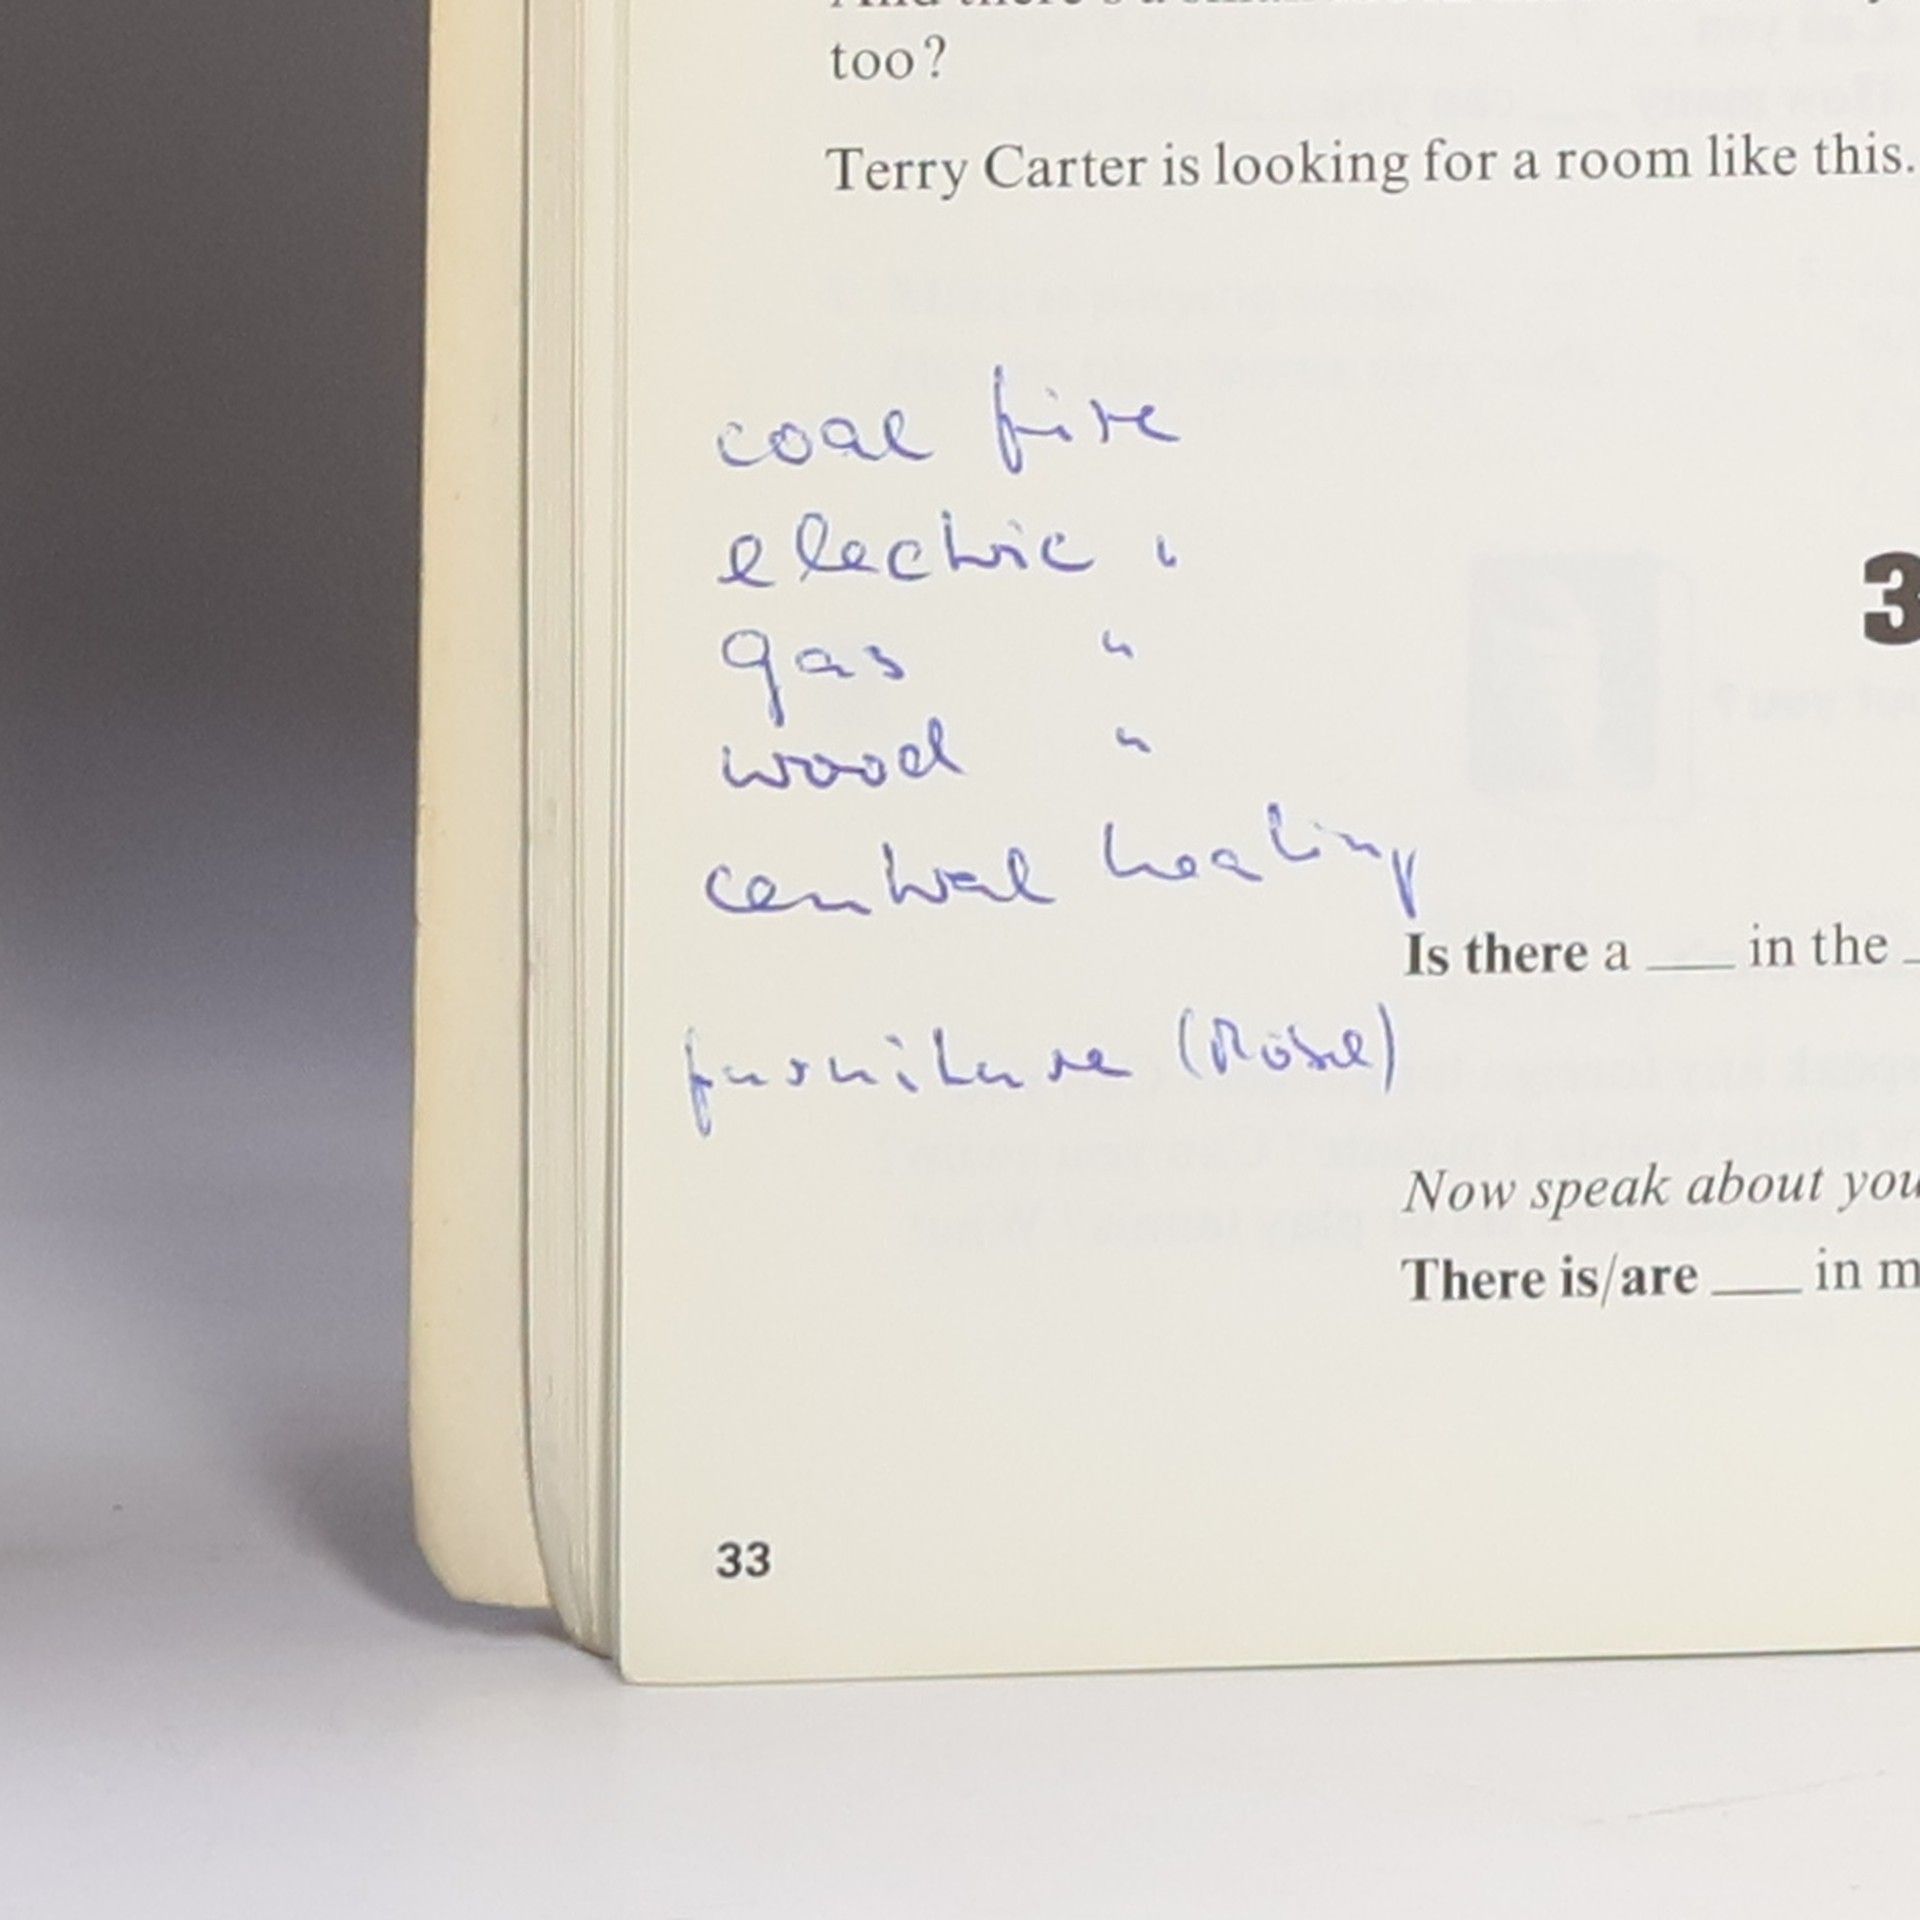 too?
Terry Carter is looking for a room like this.
coal fire
electric "
gas "
wood "
3
central heating
Is there a ___ in the
furniture (Rose)
Now speak about you
There is/are ___ in m
33